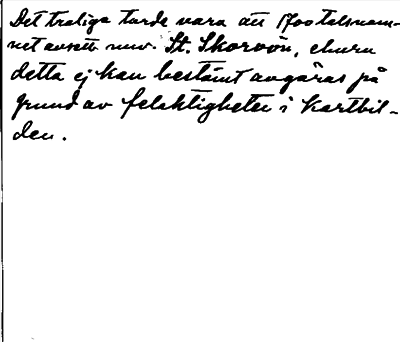 Det troliga torde vara att 1700 talsnam-
net avsett nuv. St. Skorvön, ehuru
detta ej kan bestämt avgöras på
grund av felaktigheter i kartbil-
den.